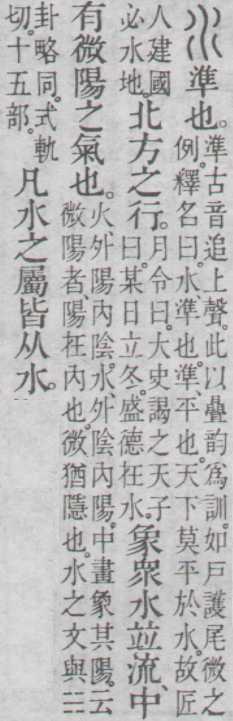 水準也。準古音追上聲。此以疊韵爲訓。如戶護尾微之
例。釋名曰。水、準也。準、平也。天下莫平於水。故匠
人建國
必水地。北方之行。月令曰。大史謁之天子
曰。某日立冬。盛德在水。象衆水竝流、中
有微陽之氣也。火、外陽內陰。水、外陰內陽。中畫象其陽。云
微陽者、陽在內也。微猶隱也。水之文與☵
卦略同。式軌
切。十五部。凡水之屬皆从水。